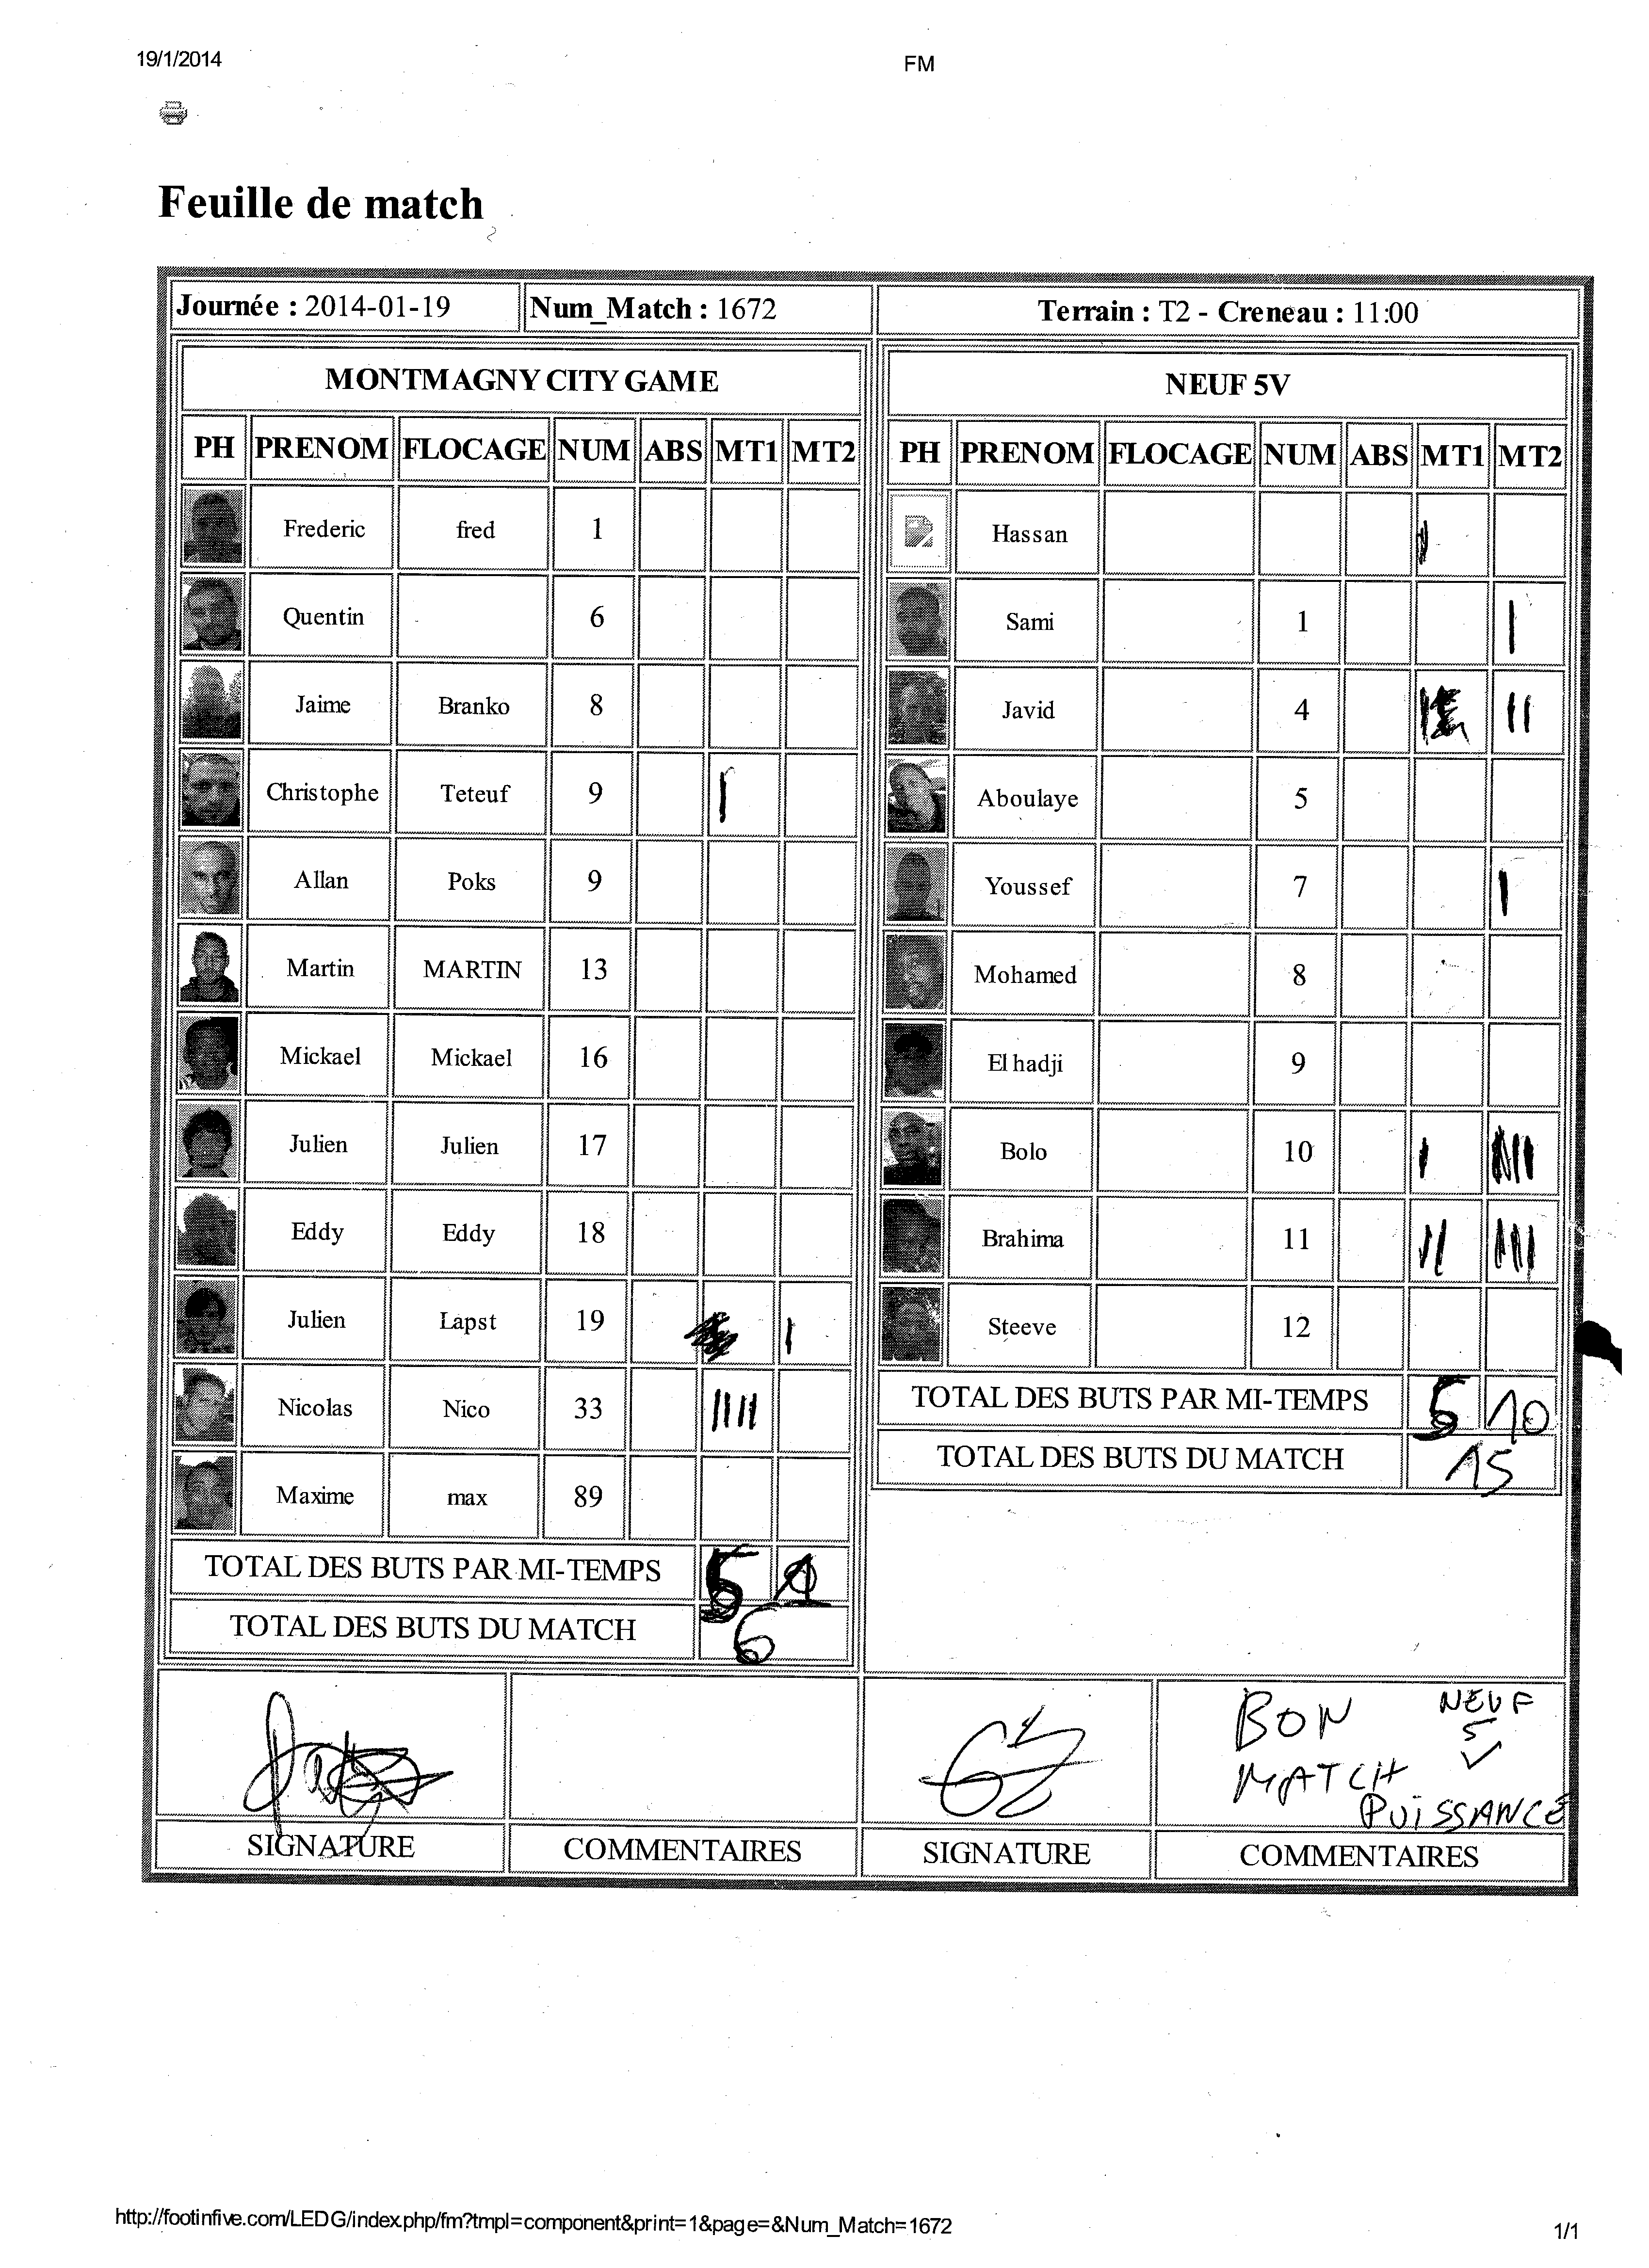 19/1/2014 FM
Feuille de match
Journée : 2014-01-19 Num_Match : 1672 Terrain : T2 - Creneau : 11:00
MONTMAGNY CITY GAME
PH PRENOM FLOCAGE NUM ABS MT1 MT2
Frederic fred 1
Quentin 6
Jaime Branko 8
Christophe Teteuf 9 I
Allan Poks 9
Martin MARTIN 13
Mickael Mickael 16
Julien Julien 17
Eddy Eddy 18
Julien Lapst 19 I
Nicolas Nico 33 IIII
Maxime max 89
TOTAL DES BUTS PAR MI-TEMPS 5 1
TOTAL DES BUTS DU MATCH 6
SIGNATURE COMMENTAIRES
NEUF 5V
PH PRENOM FLOCAGE NUM ABS MT1 MT2
Hassan
Sami 1 I
Javid 4 II
Aboulaye 5
Youssef 7 I
Mohamed 8
El hadji 9
Bolo 10 I
Brahima 11 II
Steeve 12
TOTAL DES BUTS PAR MI-TEMPS 5 10
TOTAL DES BUTS DU MATCH 15
BON NEUF
5
MATCH V
PUiSSANCE
SIGNATURE COMMENTAIRES
http://footinfive.com/LEDG/index.php/fm?tmpl=component&print=1&page=&Num_Match=1672 1/1